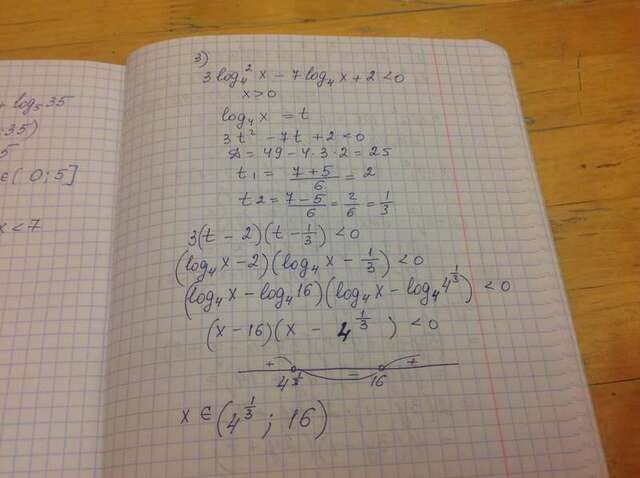 + log₅35
35)
5
∈( 0;5]
x<7
3)
3log₄²x - 7log₄x + 2 <0
x>0
log₄x = t
3t² - 7t + 2 <0
D = 49 - 4·3·2 = 25
t₁ = (7+5)/6 = 2
t2 = (7-5)/6 = 2/6 = 1/3
3(t - 2)(t - 1/3) <0
(log₄x - 2)(log₄x - 1/3) <0
(log₄x - log₄16)(log₄x - log₄4^(1/3)) <0
(x-16)(x - 4^(1/3)) <0
+ - +
4^(1/3) 16
x ∈ (4^(1/3); 16)